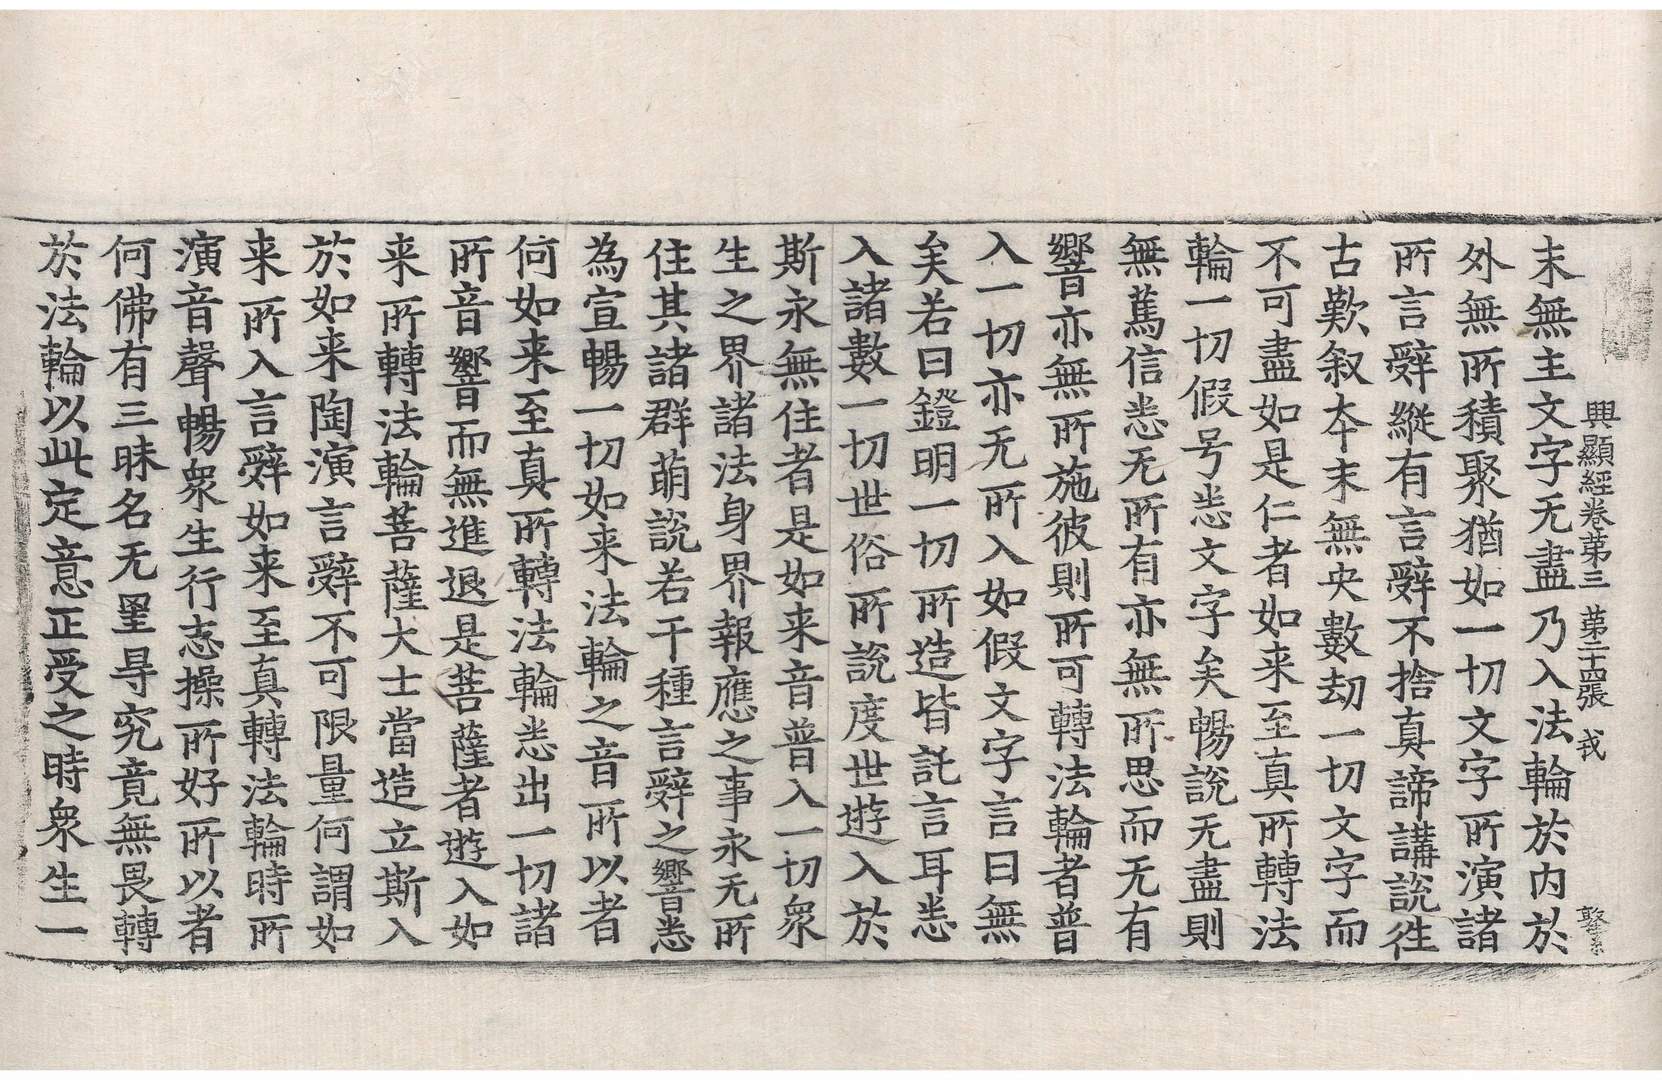 興顯經卷苐三　苐二十四張　戎
末無主文字无盡乃入法輪於内於
外無所積聚猶如一切文字所演諸
所言辭縱有言辭不捨真諦講說徃
古歎叙夲末無央數劫一切文字而
不可盡如是仁者如来至真所轉法
輪一切假号悉文字矣暢說无盡則
無篤信悉无所有亦無所思而无有
響音亦無所施彼則所可轉法輪者普
入一切亦无所入如假文字言曰無
矣若曰鐙明一切所造皆託言耳悉
入諸數一切世俗所說度世遊入於
斯永無住者是如来音普入一切衆
生之界諸法身界報應之事永无所
住其諸群萌說若干種言辭之響悉
為宣暢一切如来法輪之音所以者
何如来至真所轉法輪悉出一切諸
所音響而無進退是菩薩者遊入如
来所轉法輪菩薩大士當造立斯入
於如来陶演言辭不可限量何謂如
来所入言辭如来至真轉法輪時所
演音聲暢衆生行志操所好所以者
何佛有三昧名无罣㝵究竟無畏轉
於法輪以此定意正受之時衆生一